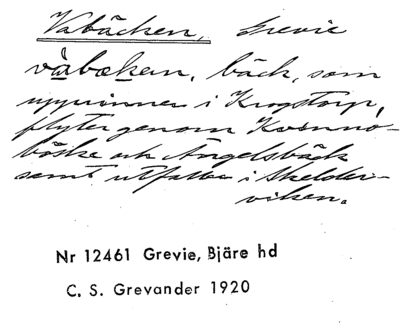 Vabäcken, Grevie
våbækan, bäck, som
upprinner i Krogstorp,
flyter genom Kvinno-
böske och Ängelsbäck
samt utfaller i Skelder-
viken.
Nr 12461 Grevie, Bjäre hd
C. S. Grevander 1920